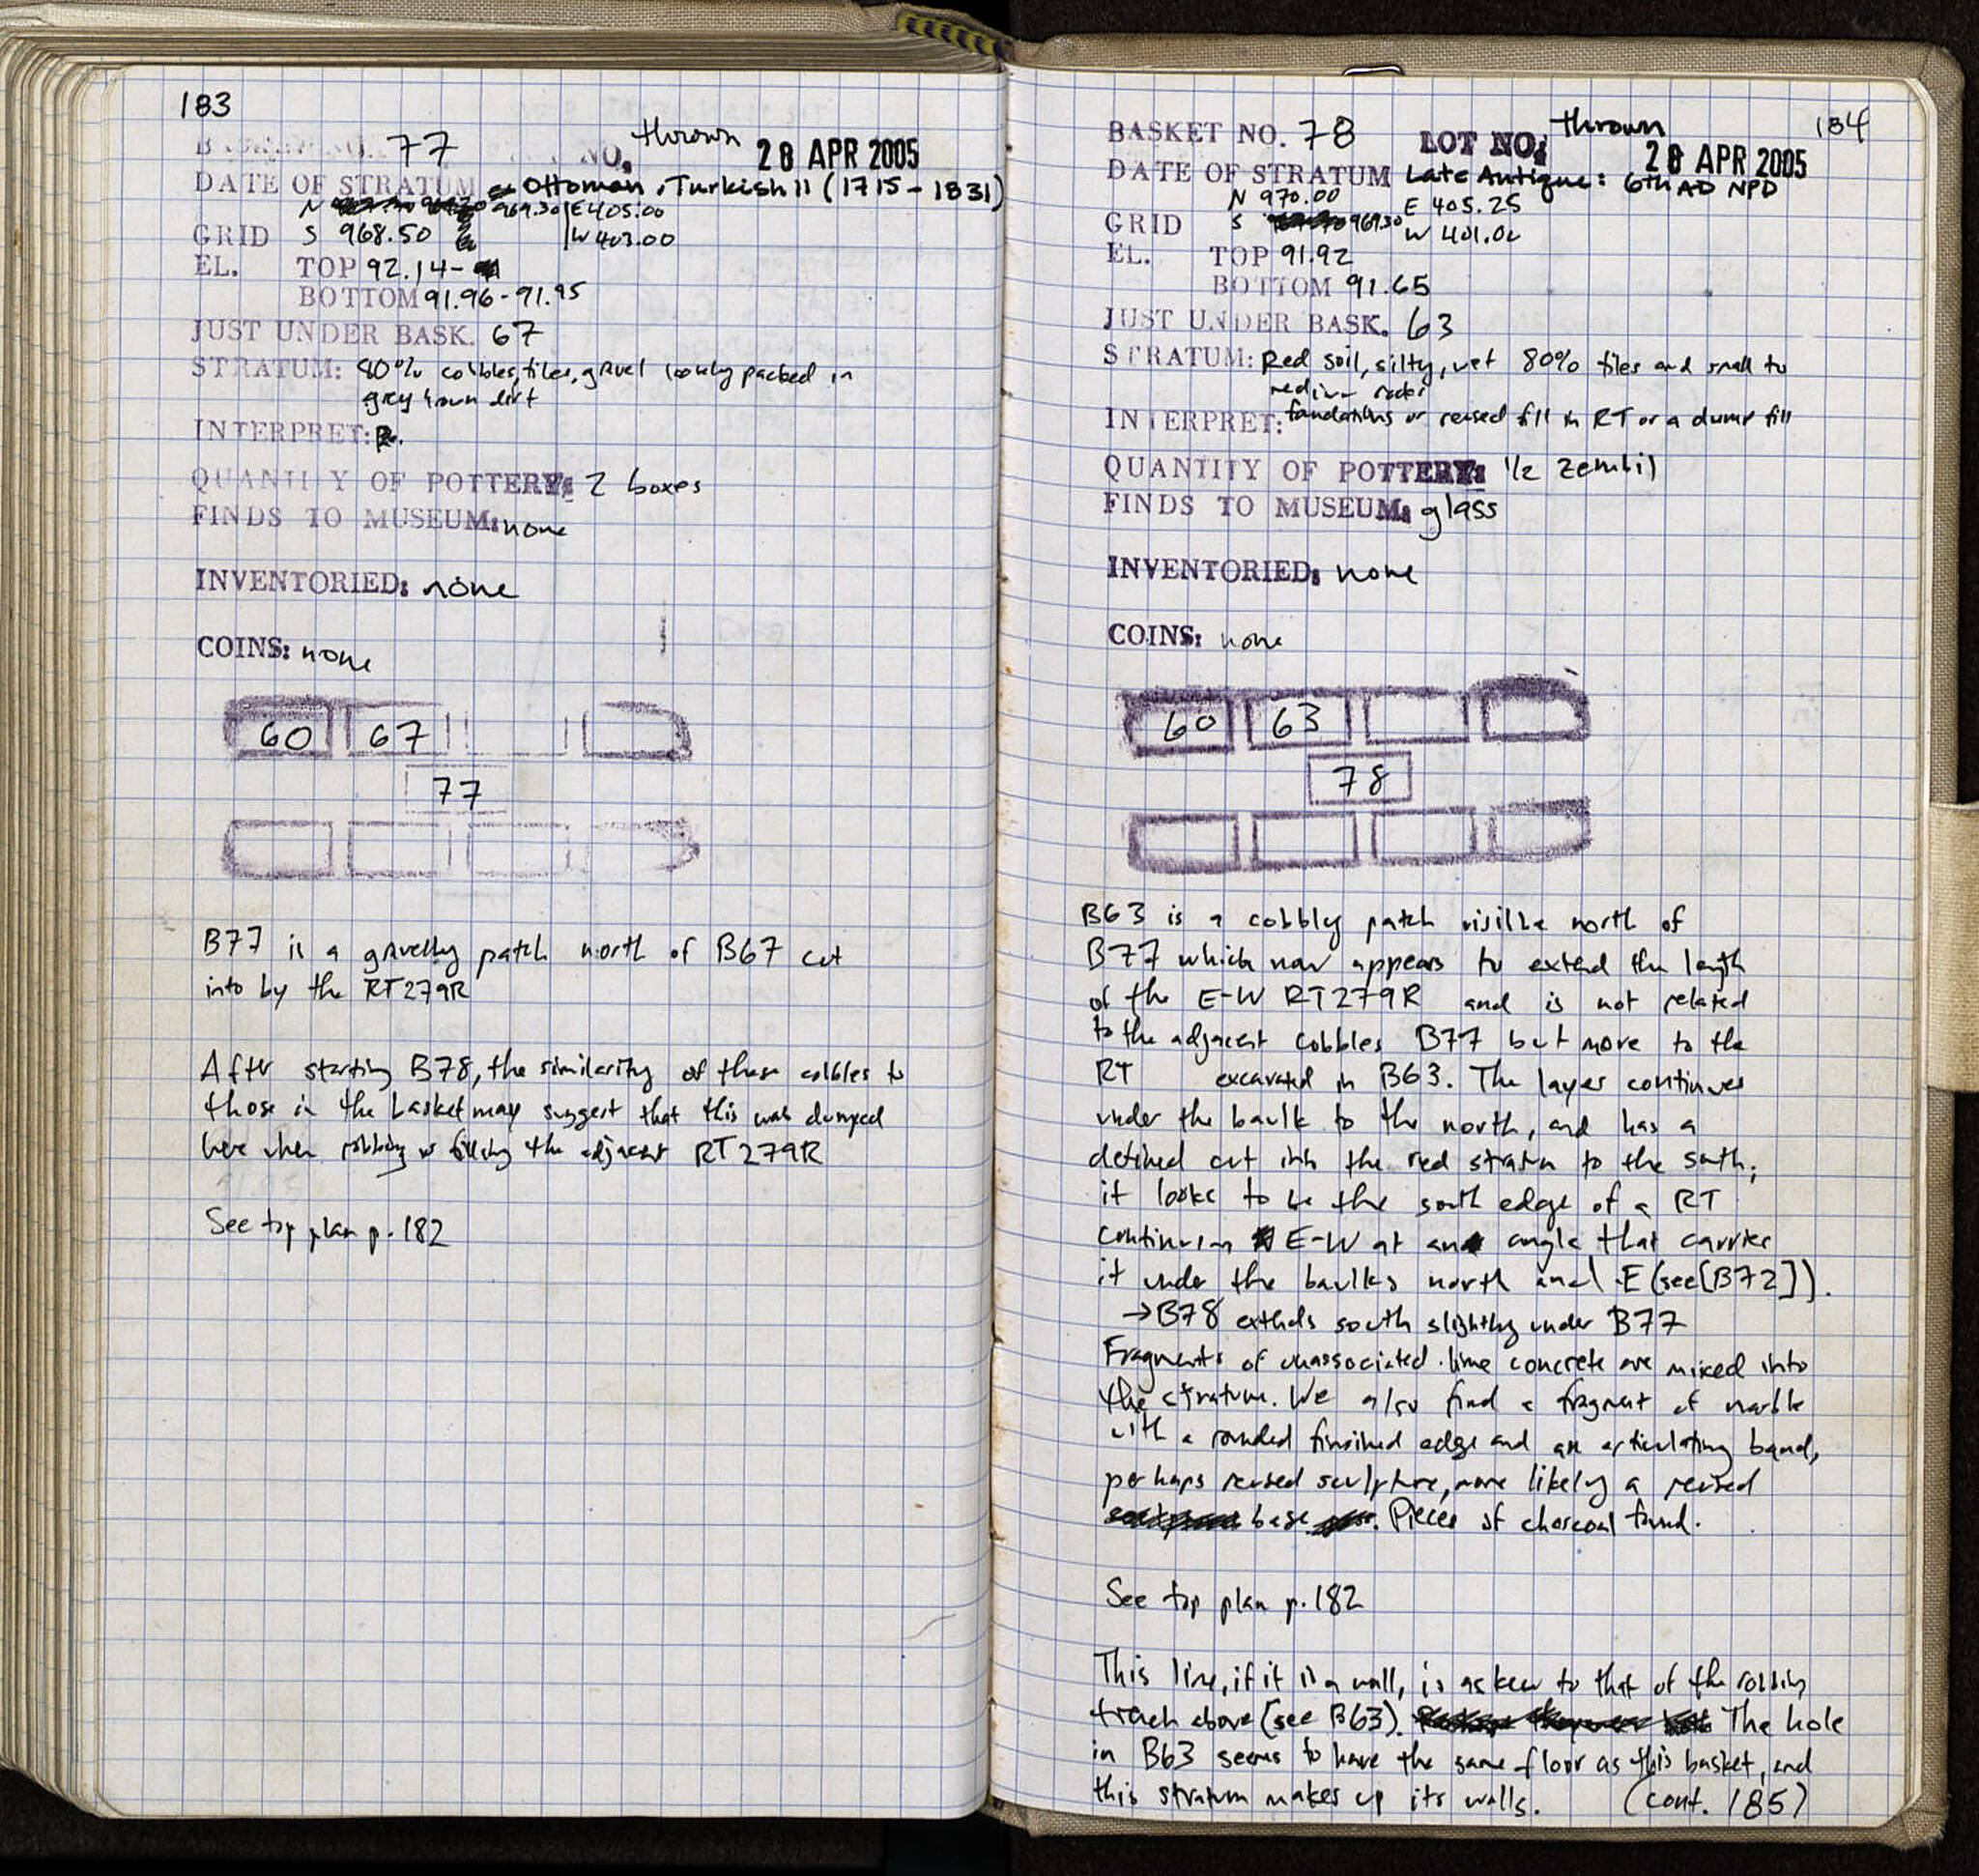 183
BASKET NO. 77 LOT NO. thrown 28 APR 2005
DATE OF STRATUM Ottoman, Turkish II (1715-1831)
N 969.30 | E 405.00
GRID S 968.50 | W 403.00
EL. TOP 92.14-
BOTTOM 91.96-91.95
JUST UNDER BASK. 67
STRATUM: 80% cobbles, tiles, gravel loosely packed in
grey brown dirt
INTERPRET:
QUANTITY OF POTTERY: 2 boxes
FINDS TO MUSEUM: none
INVENTORIED: none
COINS: none
60 67
77
B77 is a gravelly patch north of B67 cut
into by the RT279R
After starting B78, the similarity of these cobbles to
those in the basket may suggest that this was dumped
here when robbing or filling the adjacent RT279R
See top plan p. 182
184
BASKET NO. 78 LOT NO: thrown 28 APR 2005
DATE OF STRATUM Late Antique: 6th AD NPD
N 970.00 E 405.25
GRID S 969.30 W 401.00
EL. TOP 91.92
BOTTOM 91.65
JUST UNDER BASK. 63
STRATUM: Red soil, silty, wet 80% tiles and small to
medium rocks
INTERPRET: foundations or reused fill in RT or a dump fill
QUANTITY OF POTTERY: 1/2 zembil
FINDS TO MUSEUM: glass
INVENTORIED: none
COINS: none
60 63
78
B63 is a cobbly patch visible north of
B77 which now appears to extend the length
of the E-W RT279R and is not related
to the adjacent cobbles B77 but more to the
RT excavated in B63. The layer continues
under the baulk to the north, and has a
defined cut into the red strata to the south;
it looks to be the south edge of a RT
continuing E-W at an angle that carries
it under the baulks north and E (see [B72]).
→B78 extends south slightly under B77
Fragments of unassociated lime concrete are mixed into
the stratum. We also find a fragment of marble
with a rounded finished edge and an articulating band,
perhaps reused sculpture, more likely a reused
base. Pieces of charcoal found.
See top plan p. 182
This line, if it is a wall, is askew to that of the robbing
trench above (see B63). The hole
in B63 seems to have the same floor as this basket, and
this stratum makes up its walls. (cont. 185)